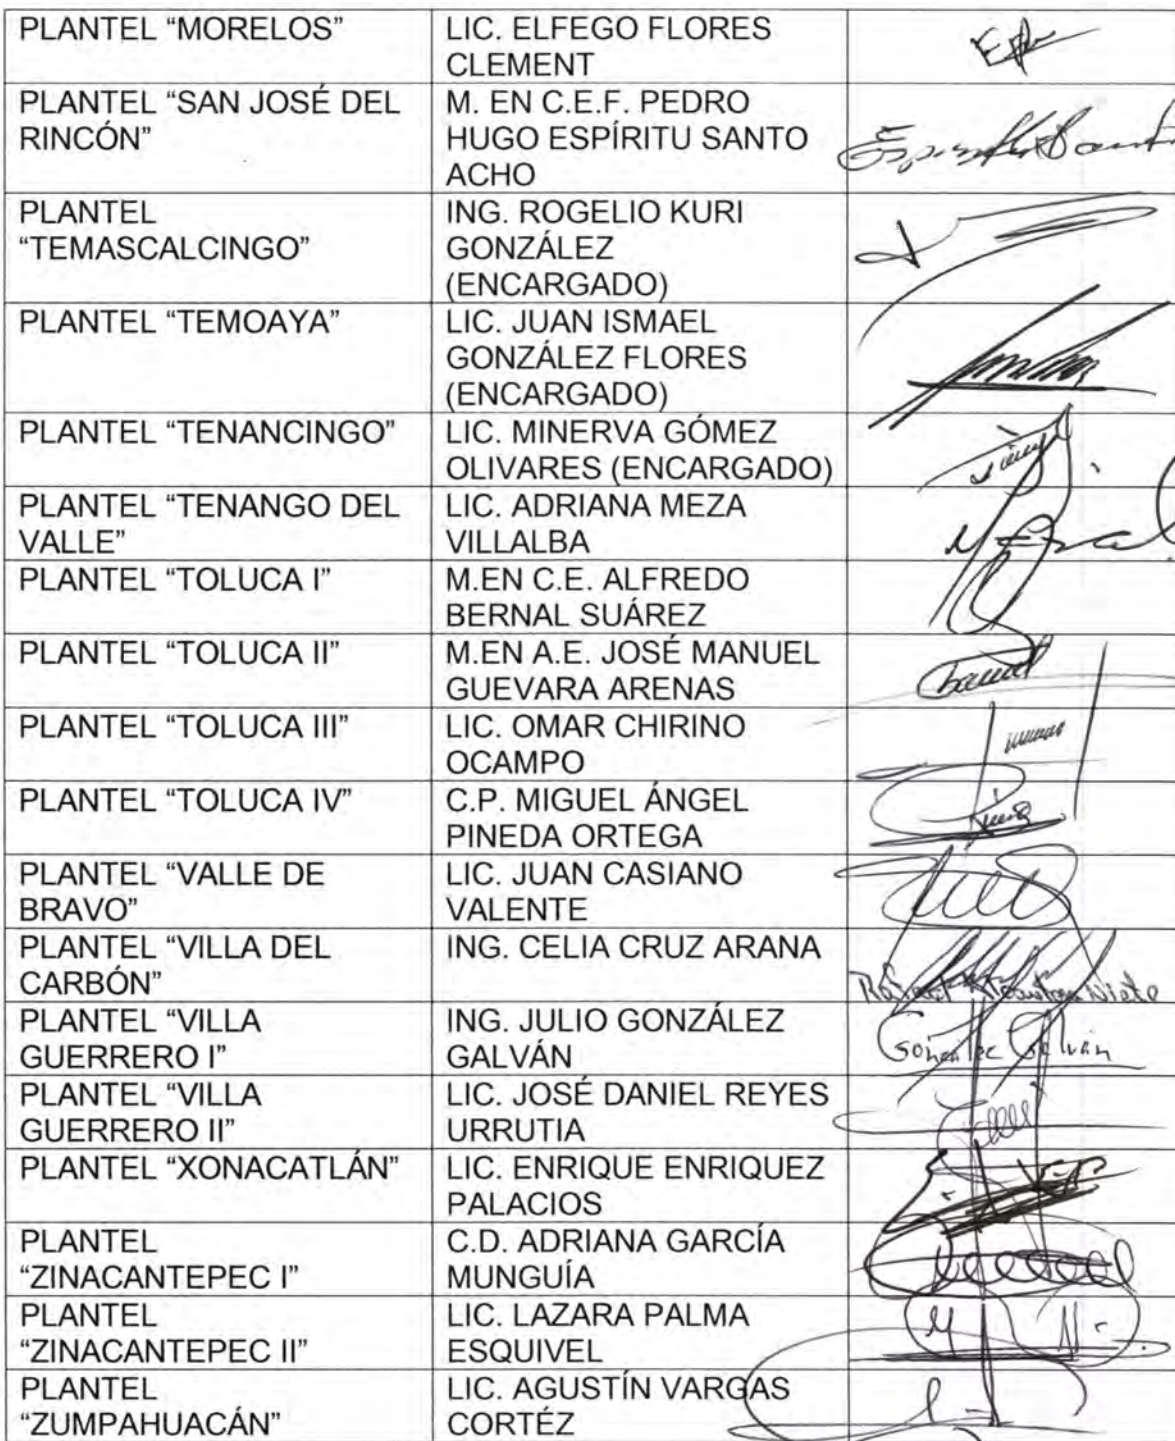 PLANTEL “MORELOS”
LIC. ELFEGO FLORES
CLEMENT
PLANTEL “SAN JOSÉ DEL
RINCÓN”
M. EN C.E.F. PEDRO
HUGO ESPÍRITU SANTO
ACHO
PLANTEL
“TEMASCALCINGO”
ING. ROGELIO KURI
GONZÁLEZ
(ENCARGADO)
PLANTEL “TEMOAYA”
LIC. JUAN ISMAEL
GONZÁLEZ FLORES
(ENCARGADO)
PLANTEL “TENANCINGO”
LIC. MINERVA GÓMEZ
OLIVARES (ENCARGADO)
PLANTEL “TENANGO DEL
VALLE”
LIC. ADRIANA MEZA
VILLALBA
PLANTEL “TOLUCA I”
M.EN C.E. ALFREDO
BERNAL SUÁREZ
PLANTEL “TOLUCA II”
M.EN A.E. JOSÉ MANUEL
GUEVARA ARENAS
PLANTEL “TOLUCA III”
LIC. OMAR CHIRINO
OCAMPO
PLANTEL “TOLUCA IV”
C.P. MIGUEL ÁNGEL
PINEDA ORTEGA
PLANTEL “VALLE DE
BRAVO”
LIC. JUAN CASIANO
VALENTE
PLANTEL “VILLA DEL
CARBÓN”
ING. CELIA CRUZ ARANA
PLANTEL “VILLA
GUERRERO I”
ING. JULIO GONZÁLEZ
GALVÁN
González Galván
PLANTEL “VILLA
GUERRERO II”
LIC. JOSÉ DANIEL REYES
URRUTIA
PLANTEL “XONACATLÁN”
LIC. ENRIQUE ENRIQUEZ
PALACIOS
PLANTEL
“ZINACANTEPEC I”
C.D. ADRIANA GARCÍA
MUNGUÍA
PLANTEL
“ZINACANTEPEC II”
LIC. LAZARA PALMA
ESQUIVEL
PLANTEL
“ZUMPAHUACÁN”
LIC. AGUSTÍN VARGAS
CORTÉZ